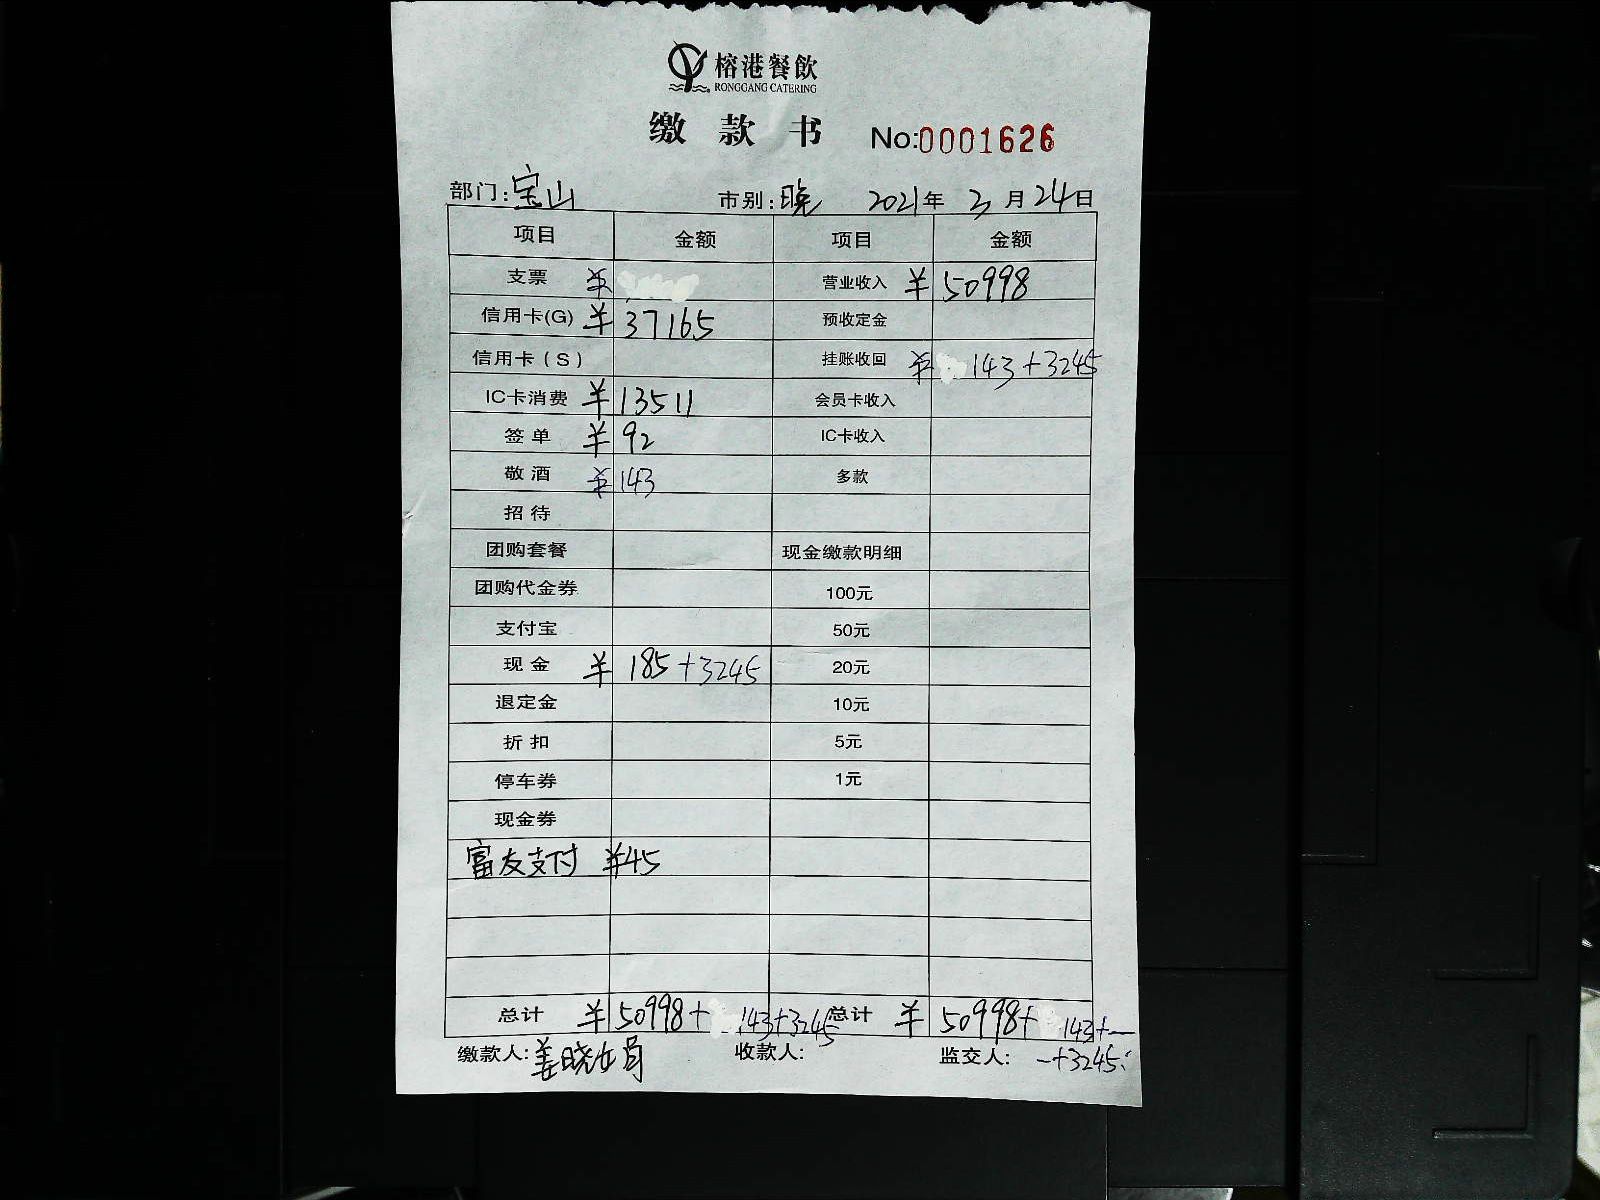 榕港餐飲
RONGGANG CATERING
缴款书 No:0001626
部门:宝山 市别:晚 2021年 3月24日
项目 金额 项目 金额
支票 ¥ 营业收入 ¥50998
信用卡(G) ¥37165 预收定金
信用卡(S) 挂账收回 ¥ 143+3245
IC卡消费 ¥13511 会员卡收入
签单 ¥92 IC卡收入
敬酒 ¥143 多款
招待
团购套餐 现金缴款明细
团购代金券 100元
支付宝 50元
现金 ¥185+3245 20元
退定金 10元
折扣 5元
停车券 1元
现金券
富友支付 ¥45
总计 ¥50998+ 143+3245 总计 ¥50998+ 143+—
缴款人:姜晓娟 收款人: 监交人: —+3245